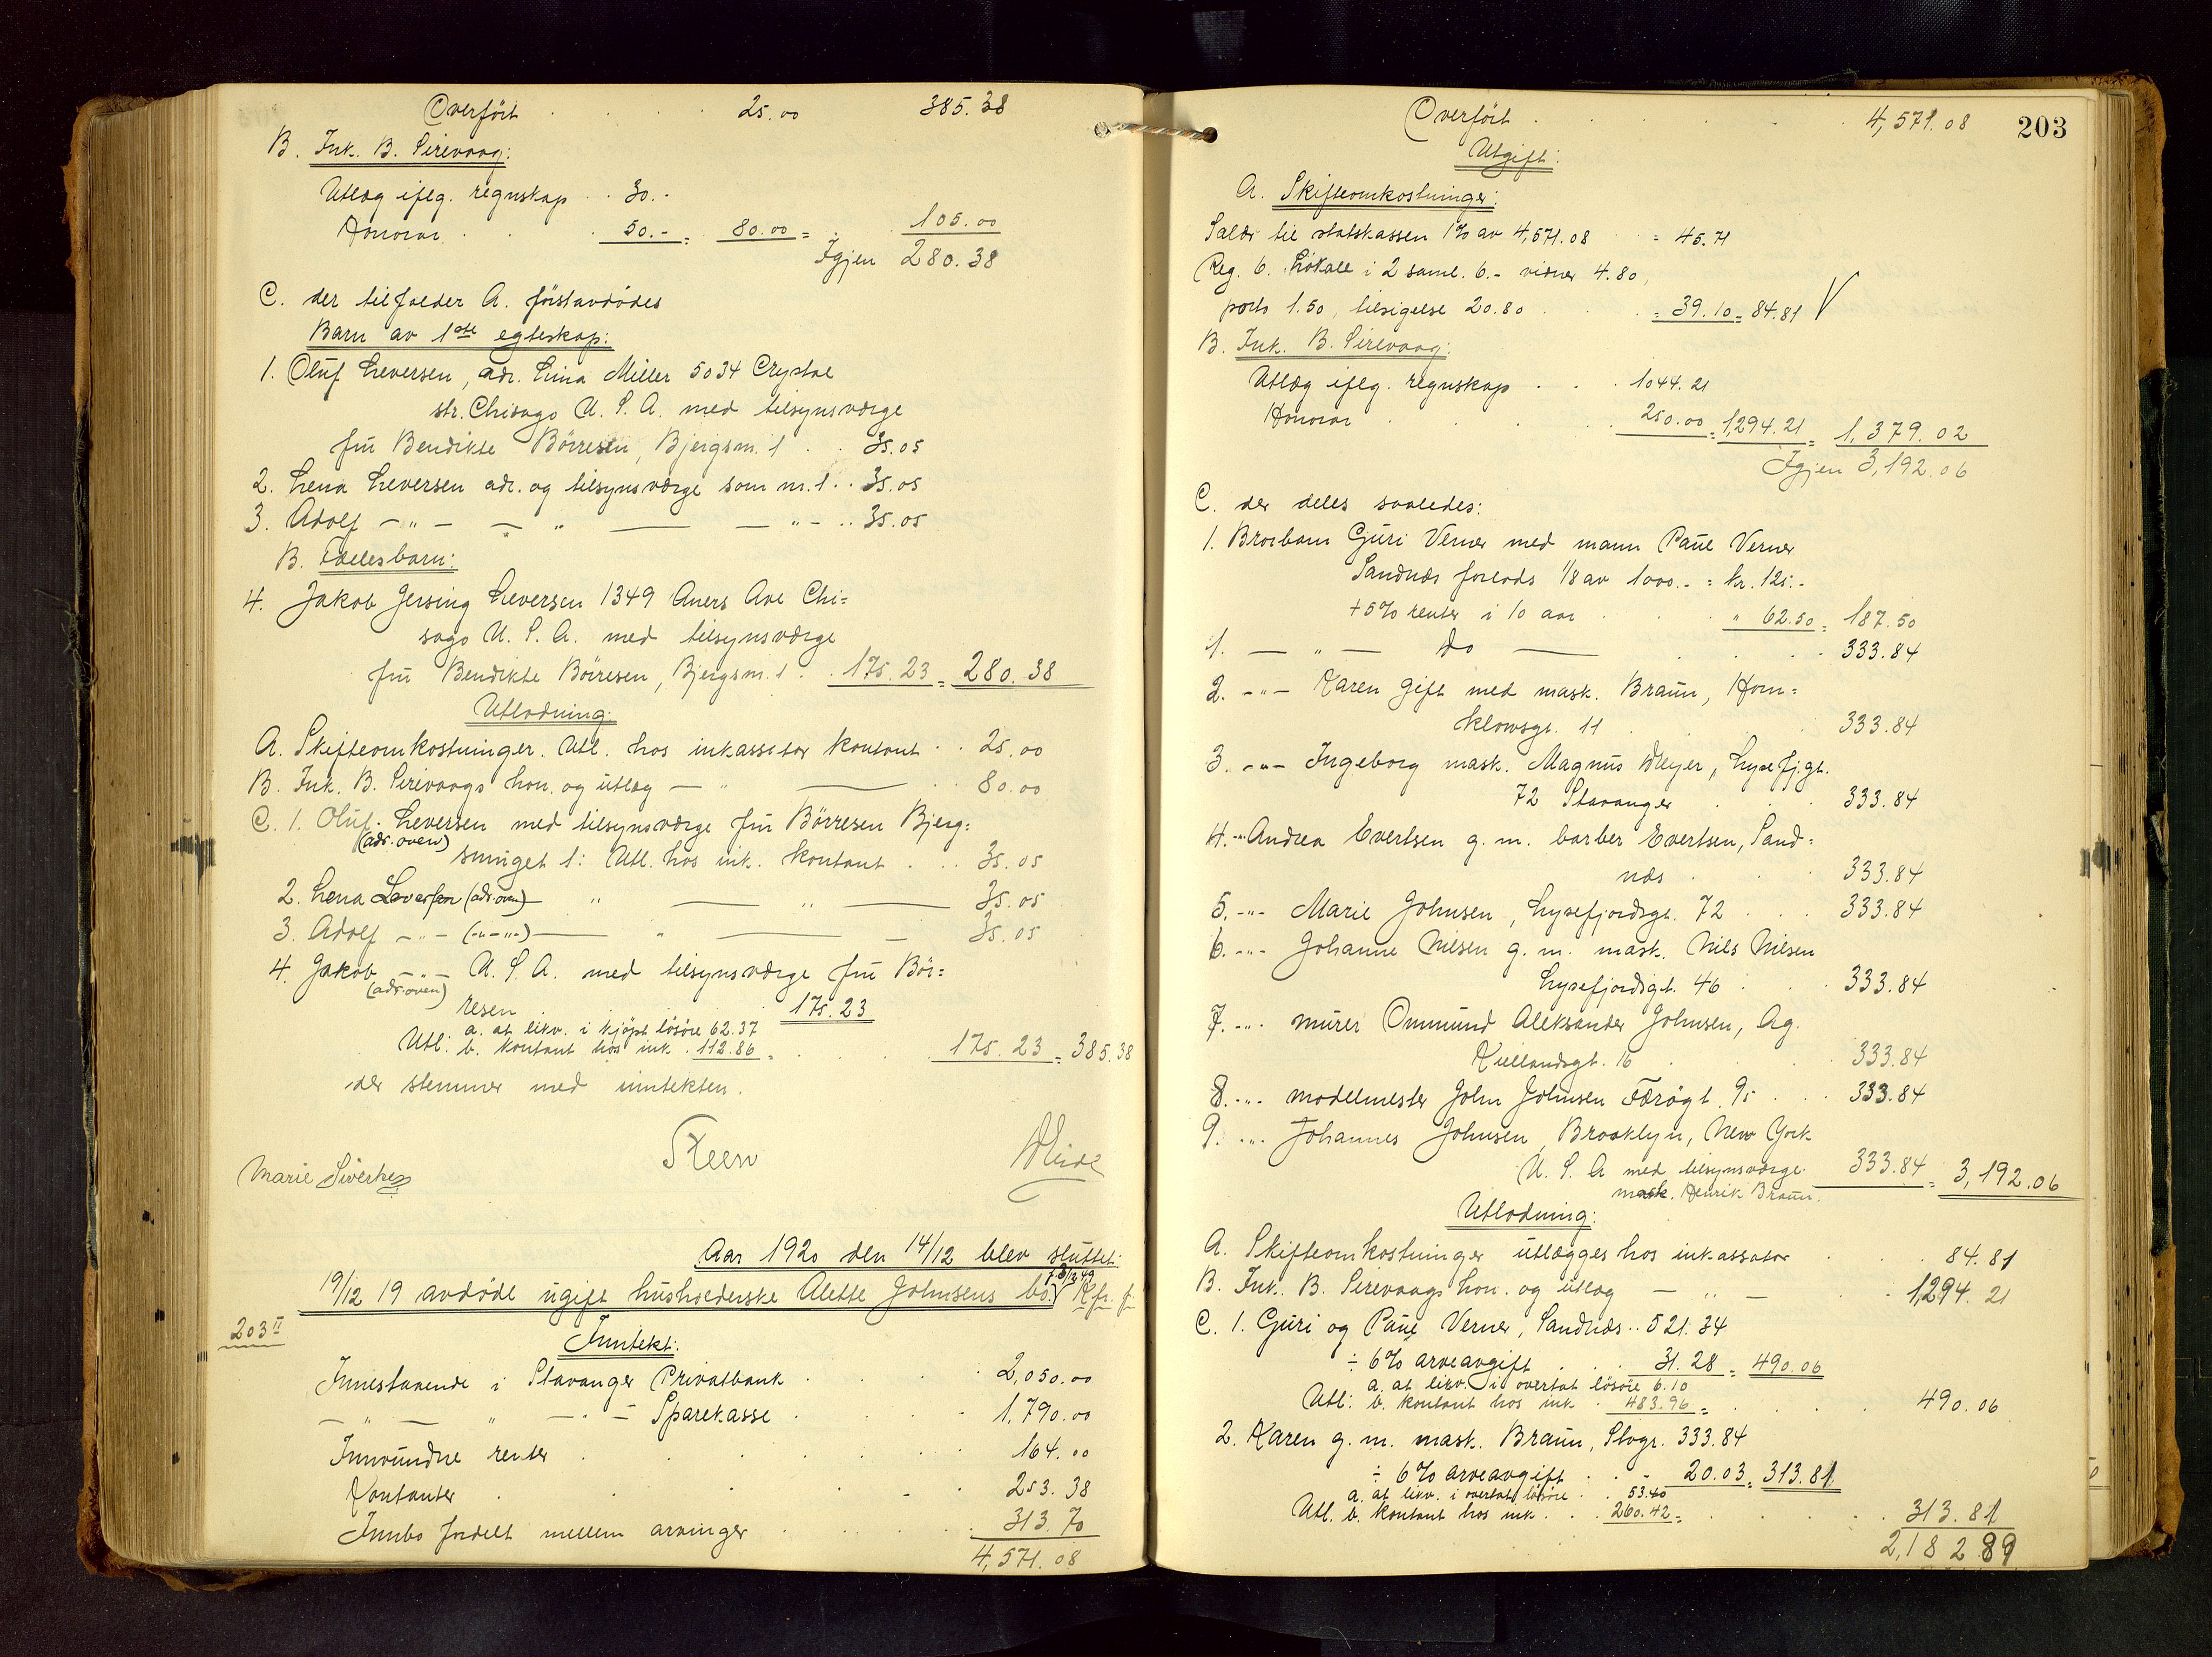 Overført 25.00 385.38
B. Ink. B. Sirevaag:
Utlæg iflg. regnskap 30.-
Honorar 50.- = 80.00 = 105.00
Igjen 280.38
C. der tilfalder A. førstavdødes
Barn av 1ste egteskap:
1. Oluf Seversen, adr. Lina Miller 5034 Crystal
str. Chicago U.S.A. med tilsynsværge
fru Bendikte Börresen, Bjergsm. 1 35.05
2. Lena Seversen adr. og tilsynsværge som nr. 1 35.05
3. Adolf - " - — " — - " - 35.05
B. Fællesbarn:
4. Jakob Gersing Seversen 1349 Aners Ave Chi=
cago U.S.A. med tilsynsværge
fru Bendikte Börresen, Bjergsm. 1 175.23 = 280.38
Utlodning:
A. Skifteomkostninger. Utl. hos inkassator kontant 25.00
B. Ink. B. Sirevaags hon. og utlæg — " — 80.00
C. 1. Oluf Seversen med tilsynsværge fru Börresen Bjerg=
(adr. oven) smuget 1: Utl. hos ink. kontant 35.05
2. Lena Seversen (adr. oven) — " — " — 35.05
3. Adolf - " - (-"-"-) — " — 35.05
4. Jakob - " - U.S.A. med tilsynsværge fru Bör=
(adr. oven) resen 175.23
a. at likv. i kjøpt løsøre 62.37
Utl: b. kontant hos ink. 112.86 = 175.23 = 385.38
der stemmer med inntekten.
Steen
Marie Siverhe
Aar 1920 den 14/12 blev sluttet:
19/12 19 avdøde ugift husholderske Alette Johnsens bo. Kfr. f.
203 II
Inntekt:
Innestaaende i Stavanger Privatbank 2,050.00
— " — " — " — Sparekasse 1,790.00
Innvundne renter 164.00
Kontanter 253.38
Innbo fordelt mellem arvinger 313.70
4,571.08
Overført 4,571.08
203
Utgift:
A. Skifteomkostninger:
Salær til statskassen 1% av 4,571.08 = 45.71
Reg. 6. Lokale i 2 saml. 6.- vidner 4.80,
porto 1.50, tilsigelse 20.80 = 39.10 = 84.81 V
B. Ink. B. Sirevaag:
Utlæg iflg. regnskap 1044.21
Honorar 250.00 = 1,294.21 = 1,379.02
Igjen 3,192.06
C. der deles saaledes:
1. Brorbarn Guri Verner med mann Paul Verner
Sandnæs forlods 1/8 av 1000.- = kr. 125.-
+ 5% renter i 10 aar " 62.50 = 187.50
1. — " — do — 333.84
2. - " - Karen gift med mask. Braun, Horn=
klowsgt. 11 333.84
3. - " - Ingeborg mask. Magnus Meyer, Lysefj.gt.
72 Stavanger 333.84
4. - " - Andrea Evertsen g. m. barber Evertsen, Sand=
næs 333.84
5. - " - Marie Johnsen, Lysefjordsgt. 72 333.84
6. - " - Johanne Nilsen g. m. mask. Nils Nilsen
Lysefjordsgt. 46 333.84
7. - " - murer Ommund Aleksander Johnsen, Ag.
Kiellandsgt. 16 333.84
8. - " - modelmester John Johnsen Færøgt. 95 333.84
9. - " - Johannes Johnsen, Brooklyn, New York
U.S.A med tilsynsværge 333.84 = 3,192.06
mask. Henrik Braun.
Utlodning:
A. Skifteomkostninger utlægges hos inkassator 84.81
B. Ink. B. Sirevaags hon. og utlæg — " — 1,294.21
C. 1. Guri og Paul Verner, Sandnæs 521.34
÷ 6% arveavgift 31.28 = 490.06
a. at likv. i overtat løsøre 6.10
Utl: b. kontant hos ink. 483.96 = 490.06
2. Karen g. m. mask. Braun, Stvgr. 333.84
÷ 6% arveavgift 20.03 = 313.81
a. at likv. i overtat løsøre 53.40
Utl. b. kontant hos ink. 260.42 = 313.81
2,182.89